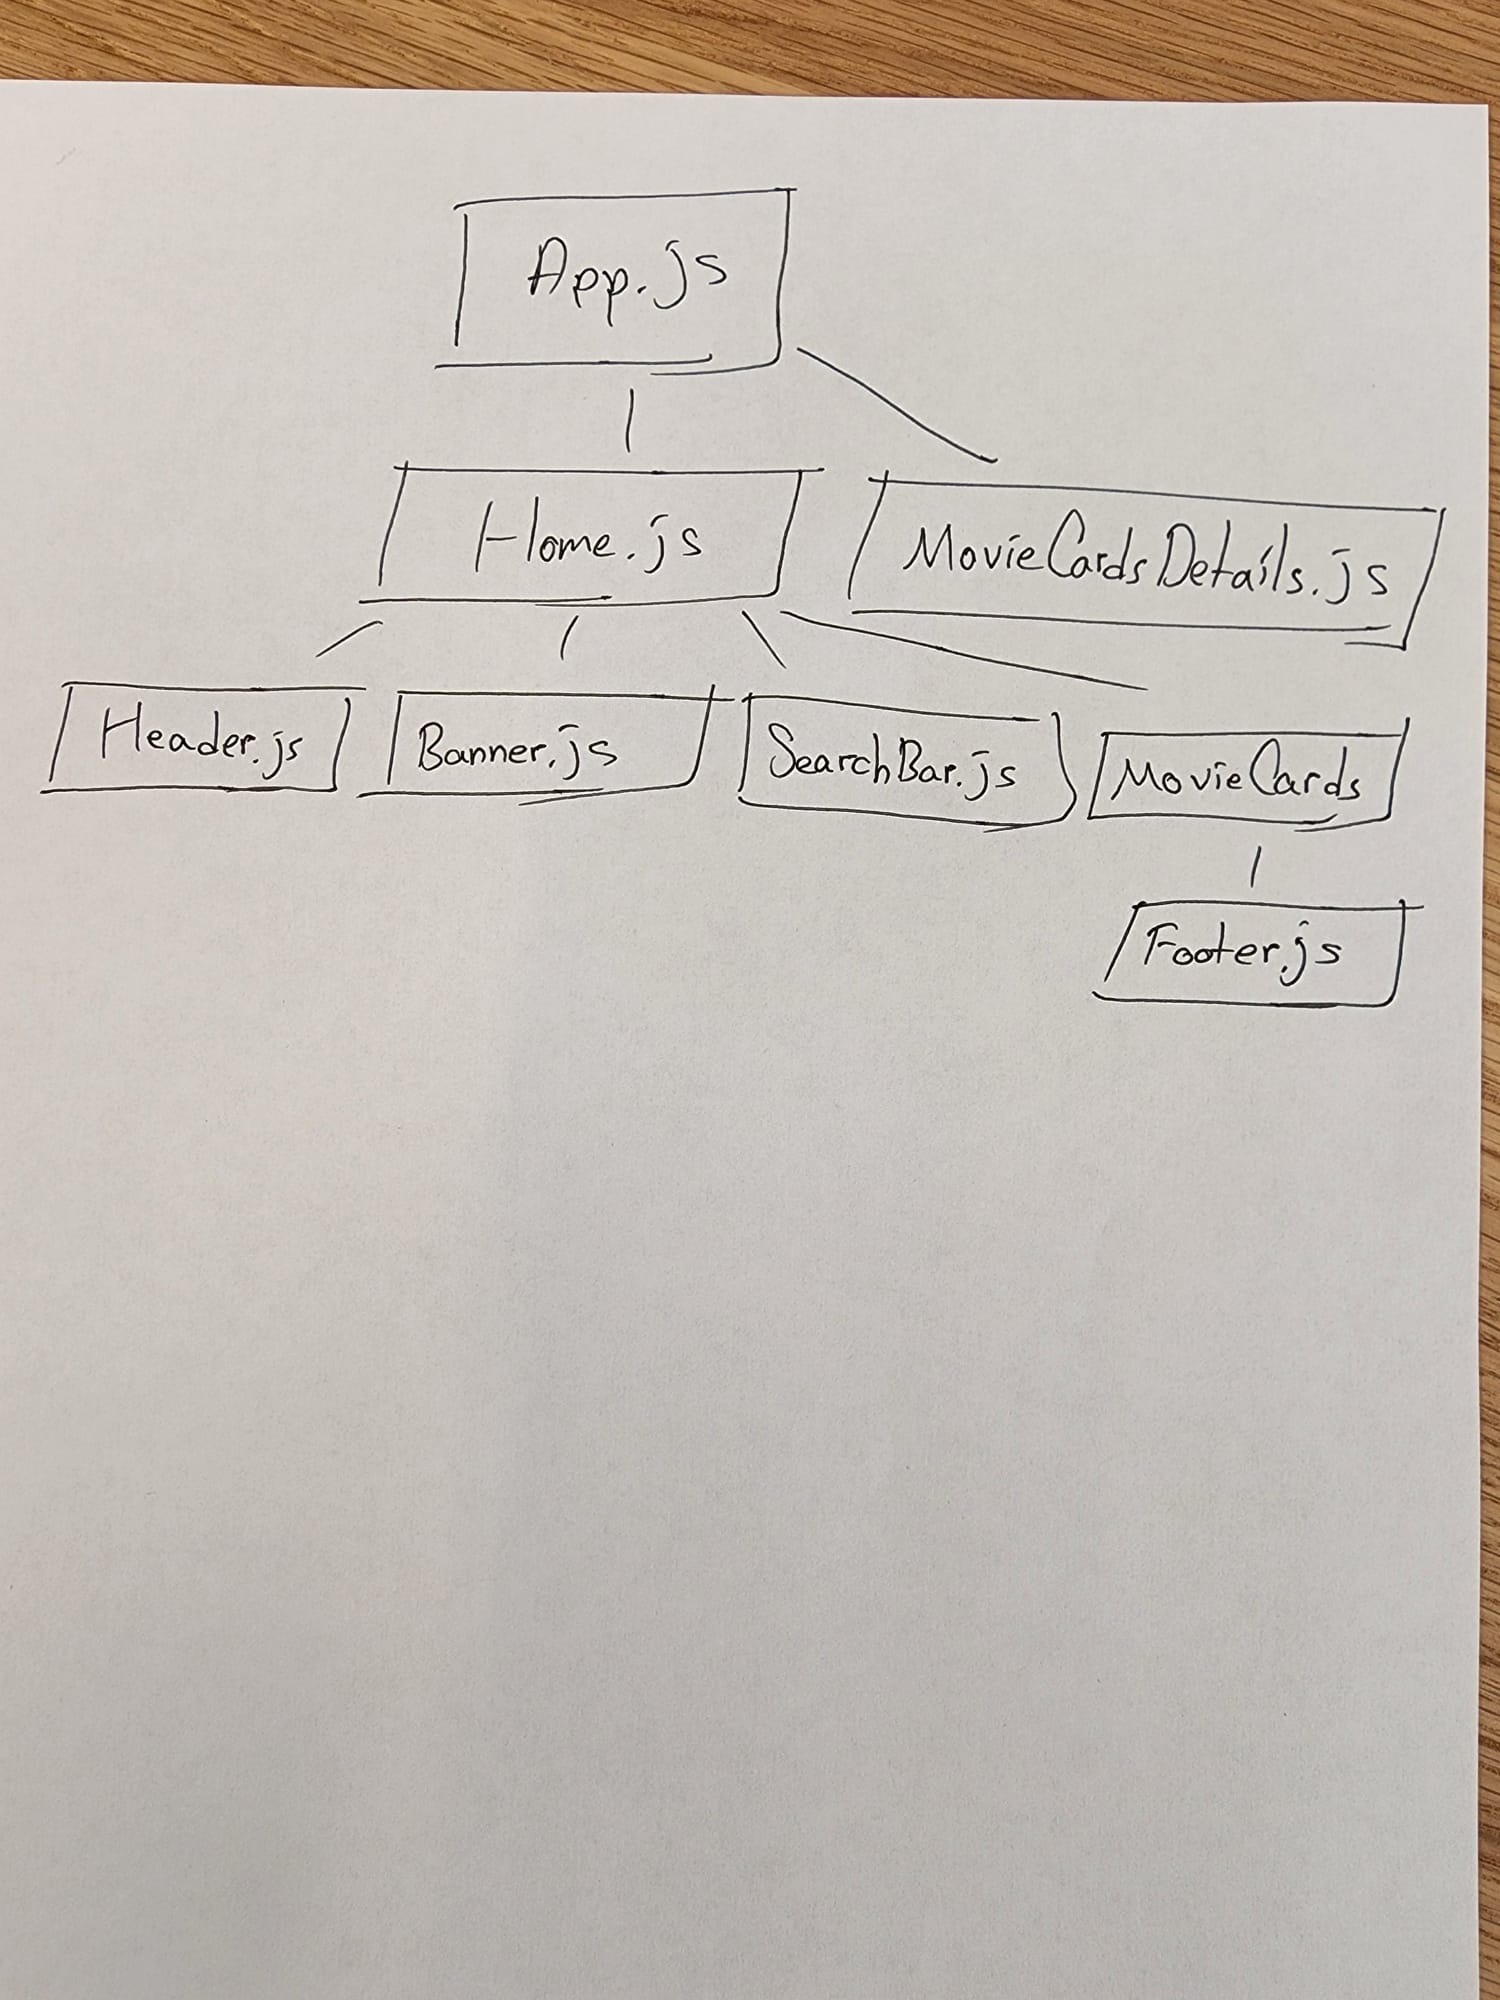 App.js
Home.js
MovieCardsDetails.js
Header.js
Banner.js
SearchBar.js
MovieCards
Footer.js